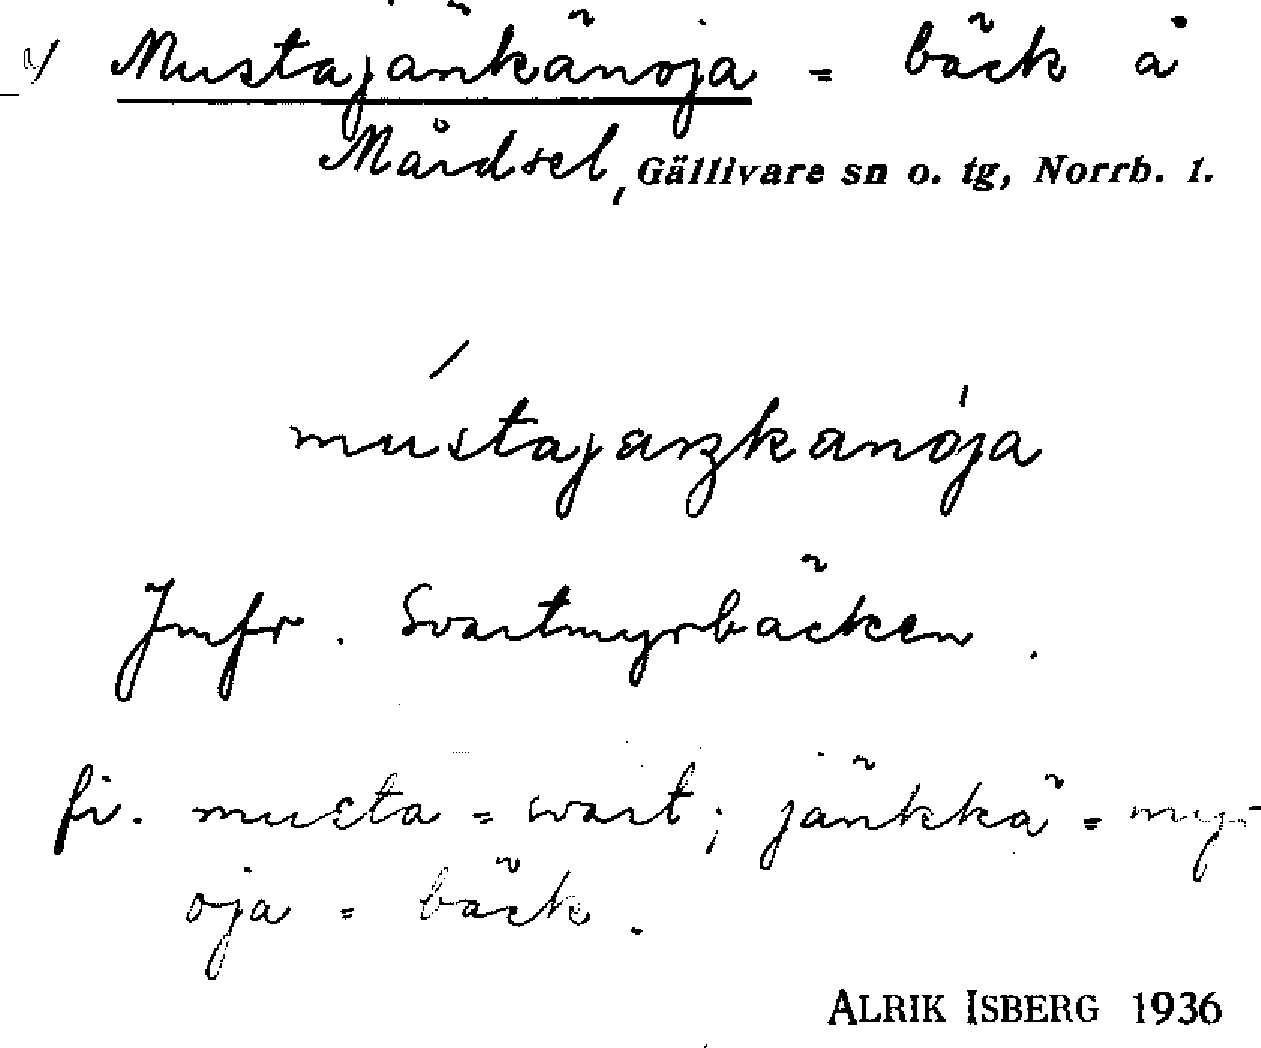 Mustajänkänoja = bäck å
Mårdsel, Gällivare sn o. tg, Norrb. l.
mústajaŋkanója
Jmfr. Svartmyrbäcken.
fi. musta = svart; jänkkä = myr
oja = bäck.
ALRIK ISBERG 1936